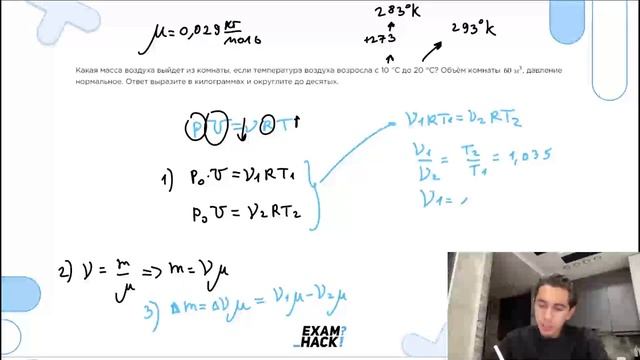 μ = 0,029 кг/моль
283°k
+273
293°k
Какая масса воздуха выйдет из комнаты, если температура воздуха возросла с 10 °C до 20 °C? Объём комнаты 60 м³, давление
нормальное. Ответ выразите в килограммах и округлите до десятых.
PV = νRT
ν1RT1 = ν2RT2
1) P₀·V = ν1RT1
P₀V = ν2RT2
ν1/ν2 = T2/T1 = 1,035
ν1 =
2) ν = m/μ => m = νμ
3) Δm = Δνμ = ν1μ - ν2μ
EXAM?
_HACK!